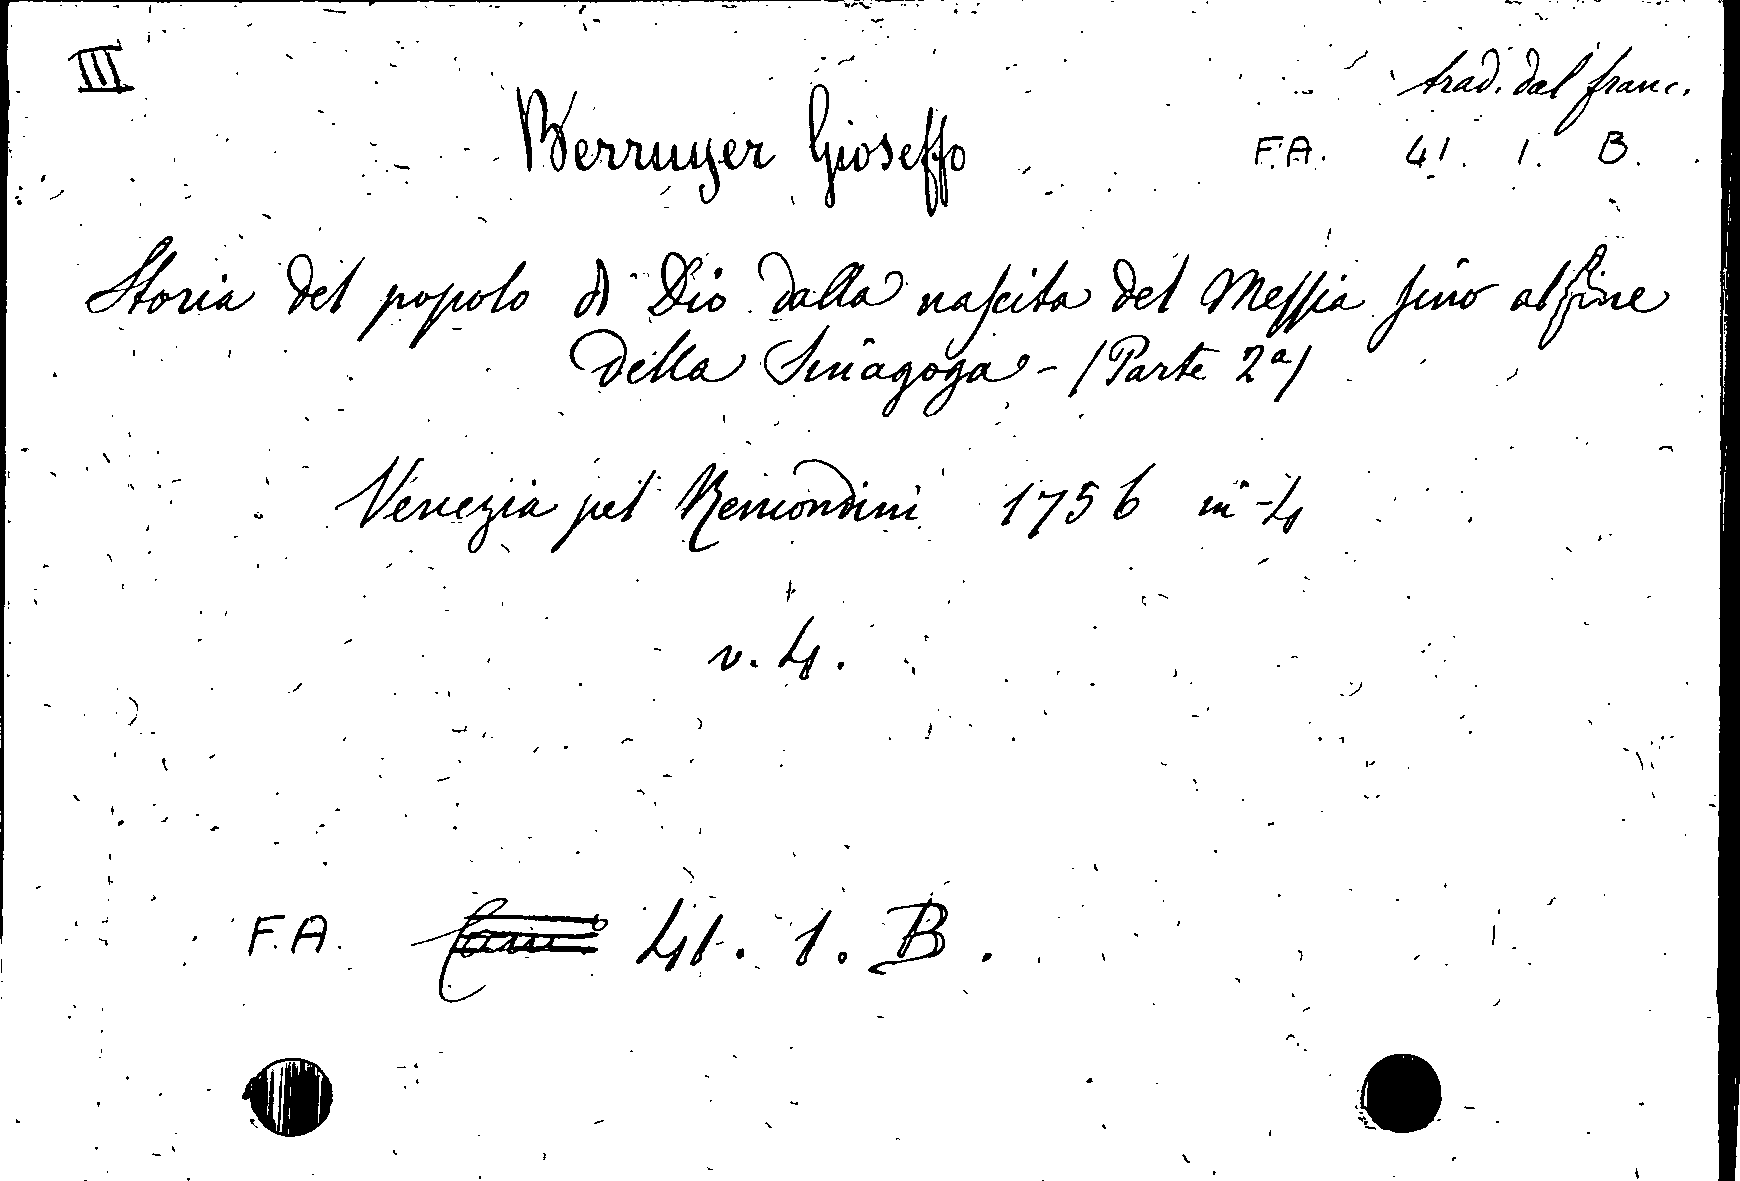 III
trad. dal franc.
Berruyer Gioseffo
F.A. 41. 1. B.
Storia del popolo di Dio dalla nascita del Messia sino al fine
della Sinagoga - (Parte 2ª)
Venezia pel Remondini 1756 in-4
v. 4.
F.A. 41. 1. B.